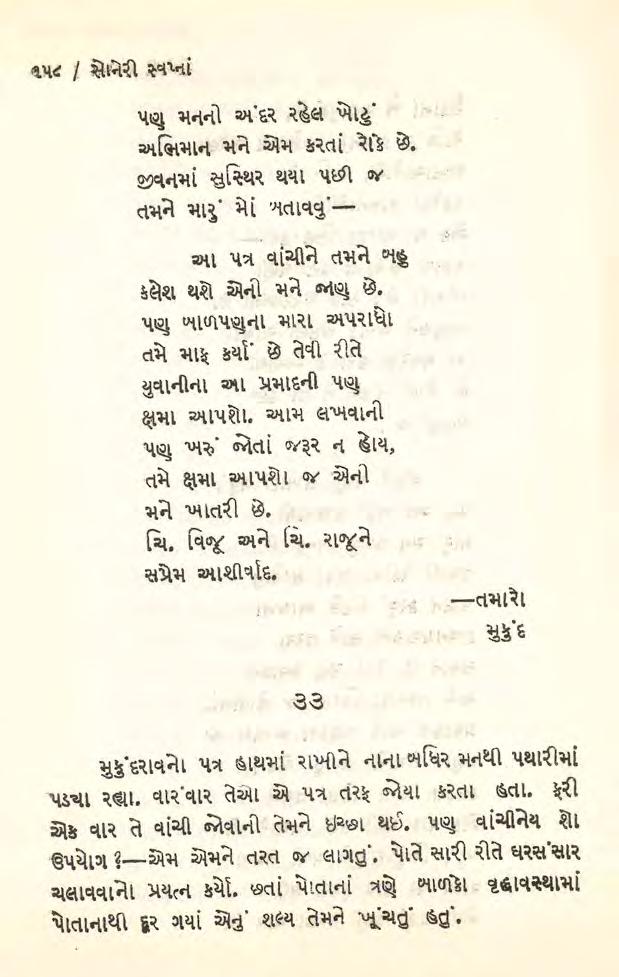 ૧૫૮ / સોનેરી સ્વપ્નાં
પણ મનનો અંદર રહેલ ખોટું
અભિમાન મને એમ કરતાં રોકે છે.
જીવનમાં સુસ્થિર થયા પછી જ
તમને મારું મોં બતાવવું—
આ પત્ર વાંચીને તમને બહુ
કલેશ થશે એની મને જાણ છે.
પણ બાળપણના મારા અપરાધો
તમે માફ કર્યાં છે તેવી રીતે
યુવાનીના આ પ્રમાદની પણ
ક્ષમા આપશો. આમ લખવાની
પણ ખરું જોતાં જરૂર ન હોય,
તમે ક્ષમા આપશો જ એની
મને ખાતરી છે.
ચિ. વિજૂ અને ચિ. રાજૂને
સપ્રેમ આશીર્વાદ.
—તમારો
મુકુંદ
૩૩
મુકુંદરાવનો પત્ર હાથમાં રાખીને નાના બધિર મનથી પથારીમાં
પડ્યા રહ્યા. વારંવાર તેઓ એ પત્ર તરફ જોયા કરતા હતા. ફરી
એક વાર તે વાંચી જોવાની તેમને ઇચ્છા થઈ. પણ વાંચીનેય શો
ઉપયોગ ?—એમ એમને તરત જ લાગતું. પોતે સારી રીતે ઘરસંસાર
ચલાવવાનો પ્રયત્ન કર્યો. છતાં પોતાનાં ત્રણે બાળકો વૃદ્ધાવસ્થામાં
પોતાનાથી દૂર ગયાં એનું શલ્ય તેમને ખૂંચતું હતું.